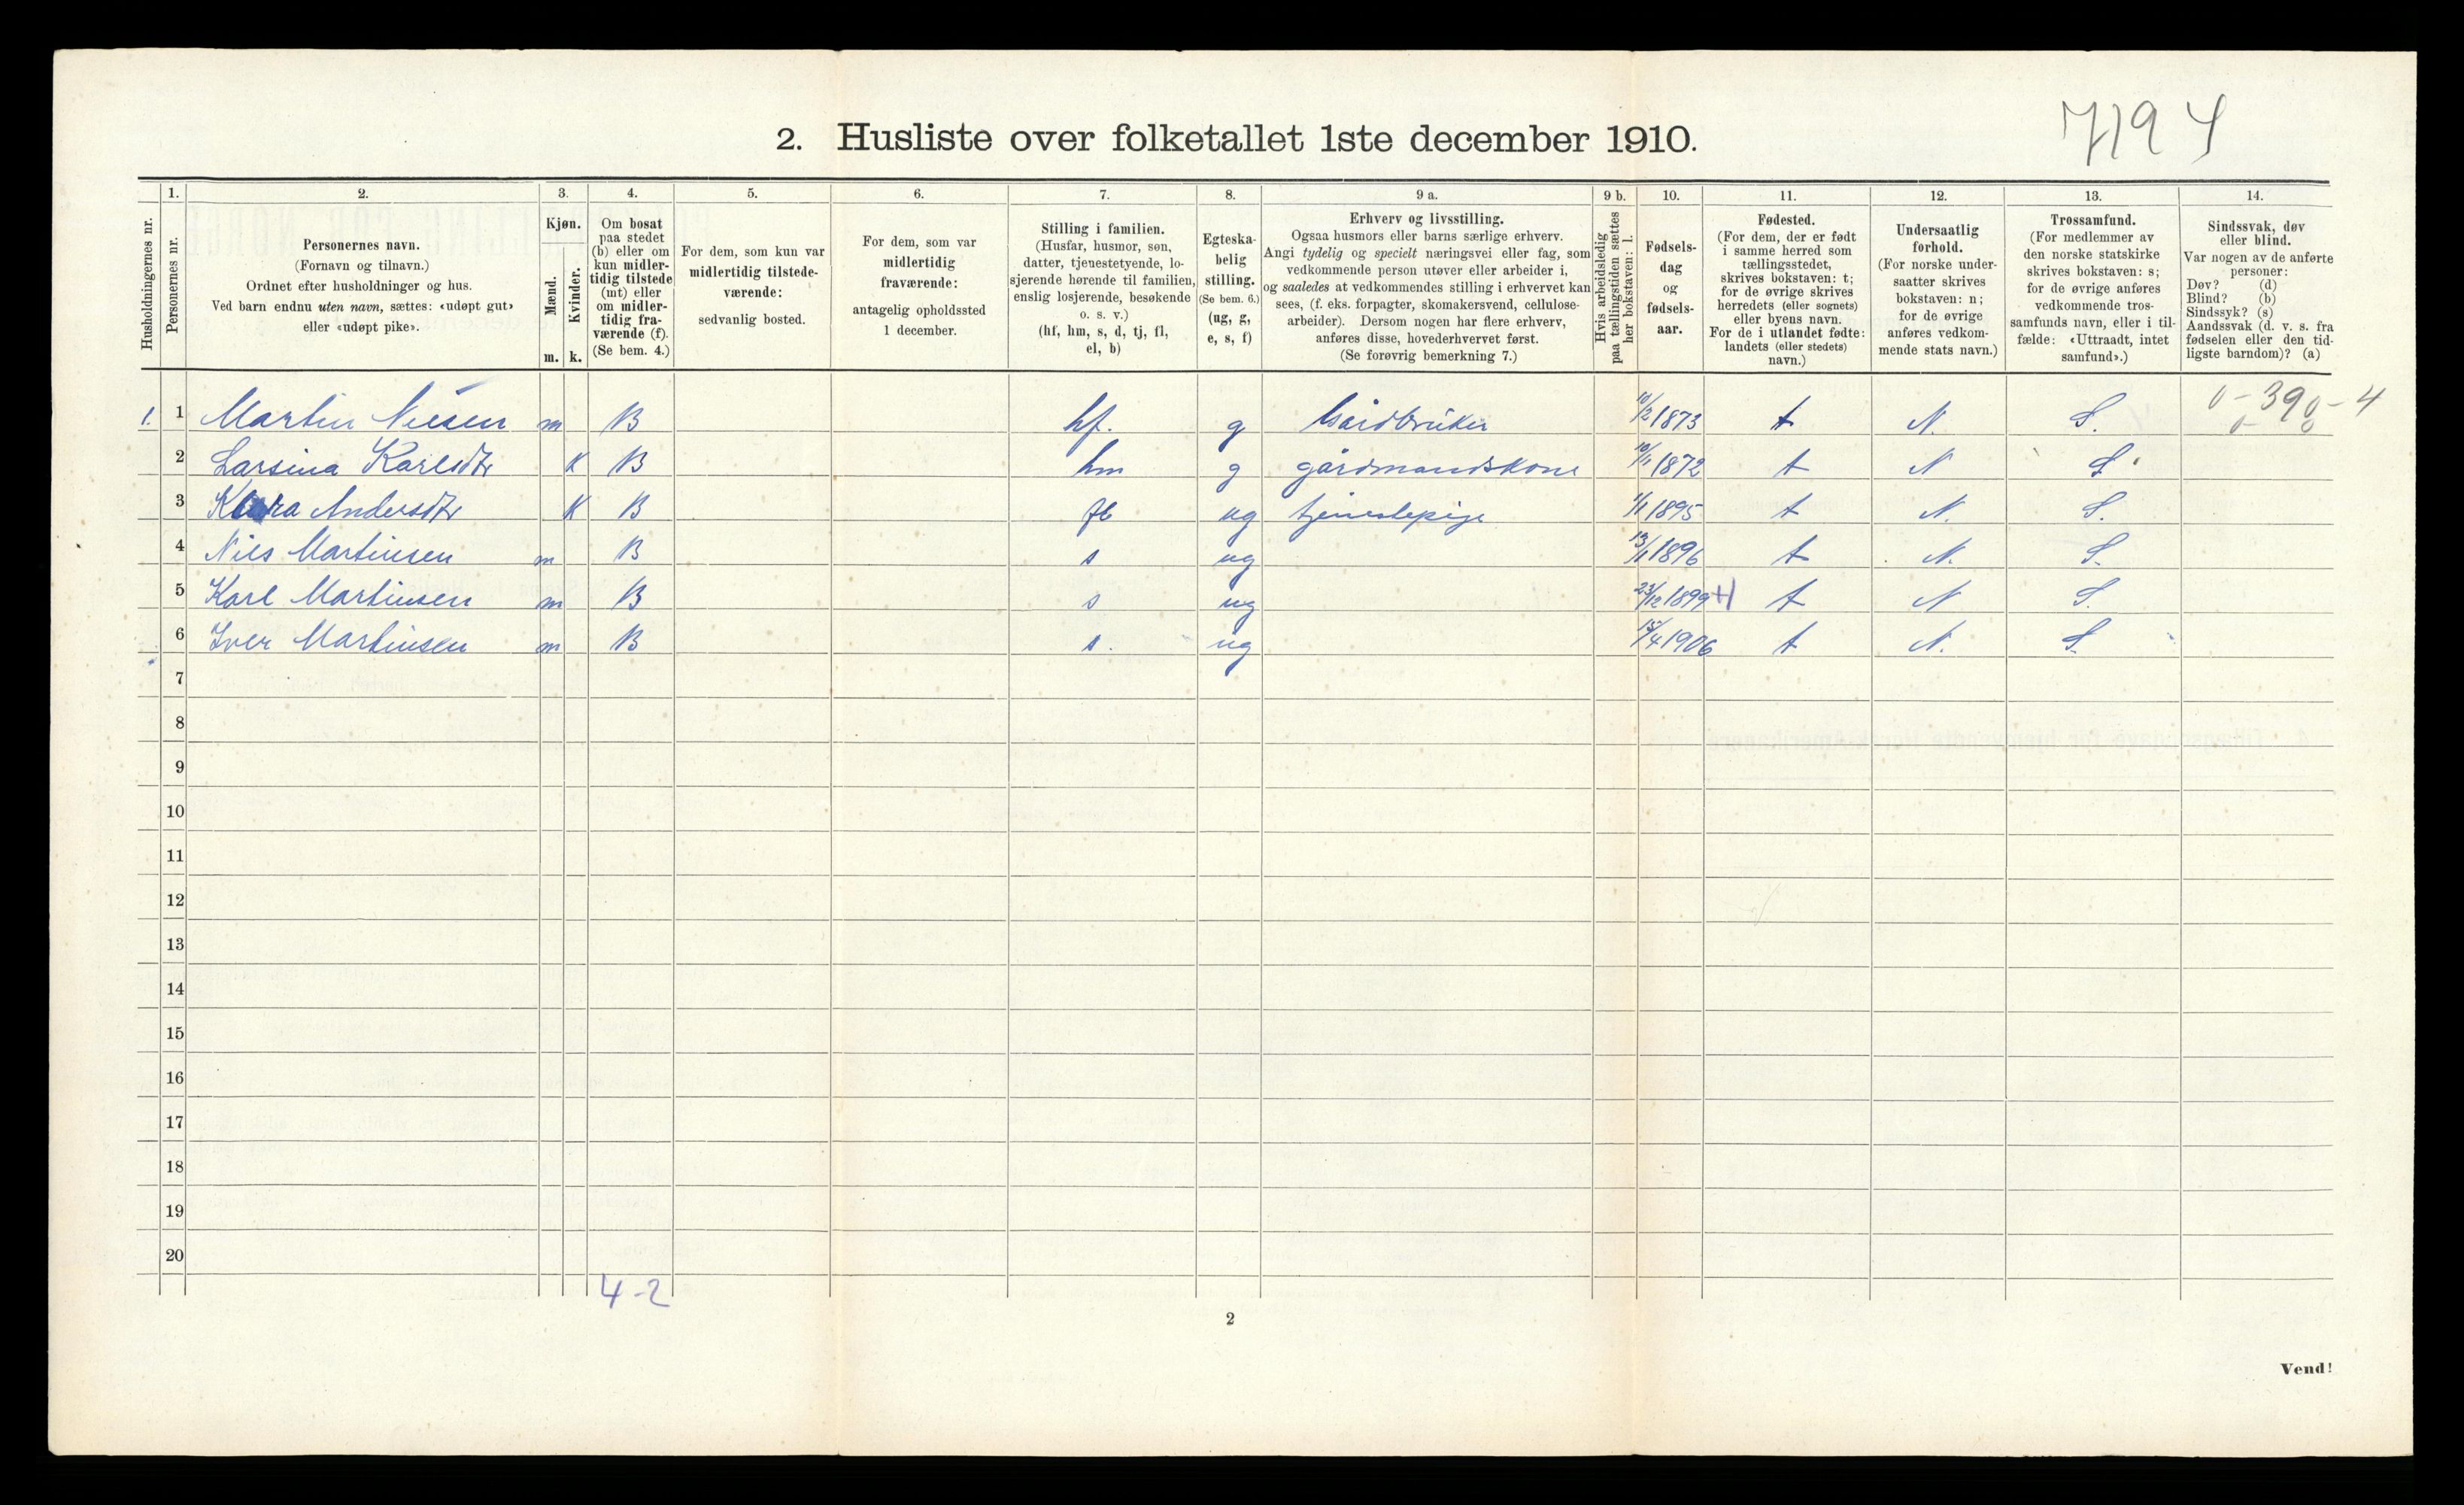 7194
2. Husliste over folketallet 1ste december 1910.
Husholdningernes nr.
1.
Personernes nr.
2.
Personernes navn.
(Fornavn og tilnavn.)
Ordnet efter husholdninger og hus.
Ved barn endnu uten navn, sættes: «udøpt gut»
eller «udøpt pike».
3.
Kjøn.
Mænd.
Kvinder.
m. k.
4.
Om bosat
paa stedet
(b) eller om
kun midler-
tidig tilstede
(mt) eller
om midler-
tidig fra-
værende (f).
(Se bem. 4.)
5.
For dem, som kun var
midlertidig tilstede-
værende:
sedvanlig bosted.
6.
For dem, som var
midlertidig
fraværende:
antagelig opholdssted
1 december.
7.
Stilling i familien.
(Husfar, husmor, søn,
datter, tjenestetyende, lo-
sjerende hørende til familien,
enslig losjerende, besøkende
o. s. v.)
(hf, hm, s, d, tj, fl,
el, b)
8.
Egteska-
belig
stilling.
(Se bem. 6.)
(ug, g,
e, s, f)
9 a.
Erhverv og livsstilling.
Ogsaa husmors eller barns særlige erhverv.
Angi tydelig og specielt næringsvei eller fag, som
vedkommende person utøver eller arbeider i,
og saaledes at vedkommendes stilling i erhvervet kan
sees, (f. eks. forpagter, skomakersvend, cellulose-
arbeider). Dersom nogen har flere erhverv,
anføres disse, hovederhvervet først.
(Se forøvrig bemerkning 7.)
9 b.
Hvis arbeidsledig
paa tællingstiden sættes
her bokstaven: l.
10.
Fødsels-
dag
og
fødsels-
aar.
11.
Fødested.
(For dem, der er født
i samme herred som
tællingsstedet,
skrives bokstaven: t;
for de øvrige skrives
herredets (eller sognets)
eller byens navn.
For de i utlandet fødte:
landets (eller stedets)
navn.)
12.
Undersaatlig
forhold.
(For norske under-
saatter skrives
bokstaven: n;
for de øvrige
anføres vedkom-
mende stats navn.)
13.
Trossamfund.
(For medlemmer av
den norske statskirke
skrives bokstaven: s;
for de øvrige anføres
vedkommende tros-
samfunds navn, eller i til-
fælde: «Uttraadt, intet
samfund».)
14.
Sindssvak, døv
eller blind.
Var nogen av de anførte
personer:
Døv? (d)
Blind? (b)
Sindssyk? (s)
Aandssvak (d. v. s. fra
fødselen eller den tid-
ligste barndom)? (a)
1. 1 Martin Nilsen m B hf. g Gårdbruker 10/2 1873 t N. S. 0-390-4
2 Larsina Karlsdtr K B hm g gårdmandskone 10/11 1872 t N S
3 Klara Andersdtr K B fl ug tjenestepige 1/1 1895 t N. S.
4 Nils Martinsen m B s ug 13/1 1896 t N. S.
5 Karl Martinsen m B s ug 23/12 1899 t N S.
6 Iver Martinsen m B s. ug 15/4 1906 t N. S.
7
8
9
10
11
12
13
14
15
16
17
18
19
20
4-2
2
Vend!